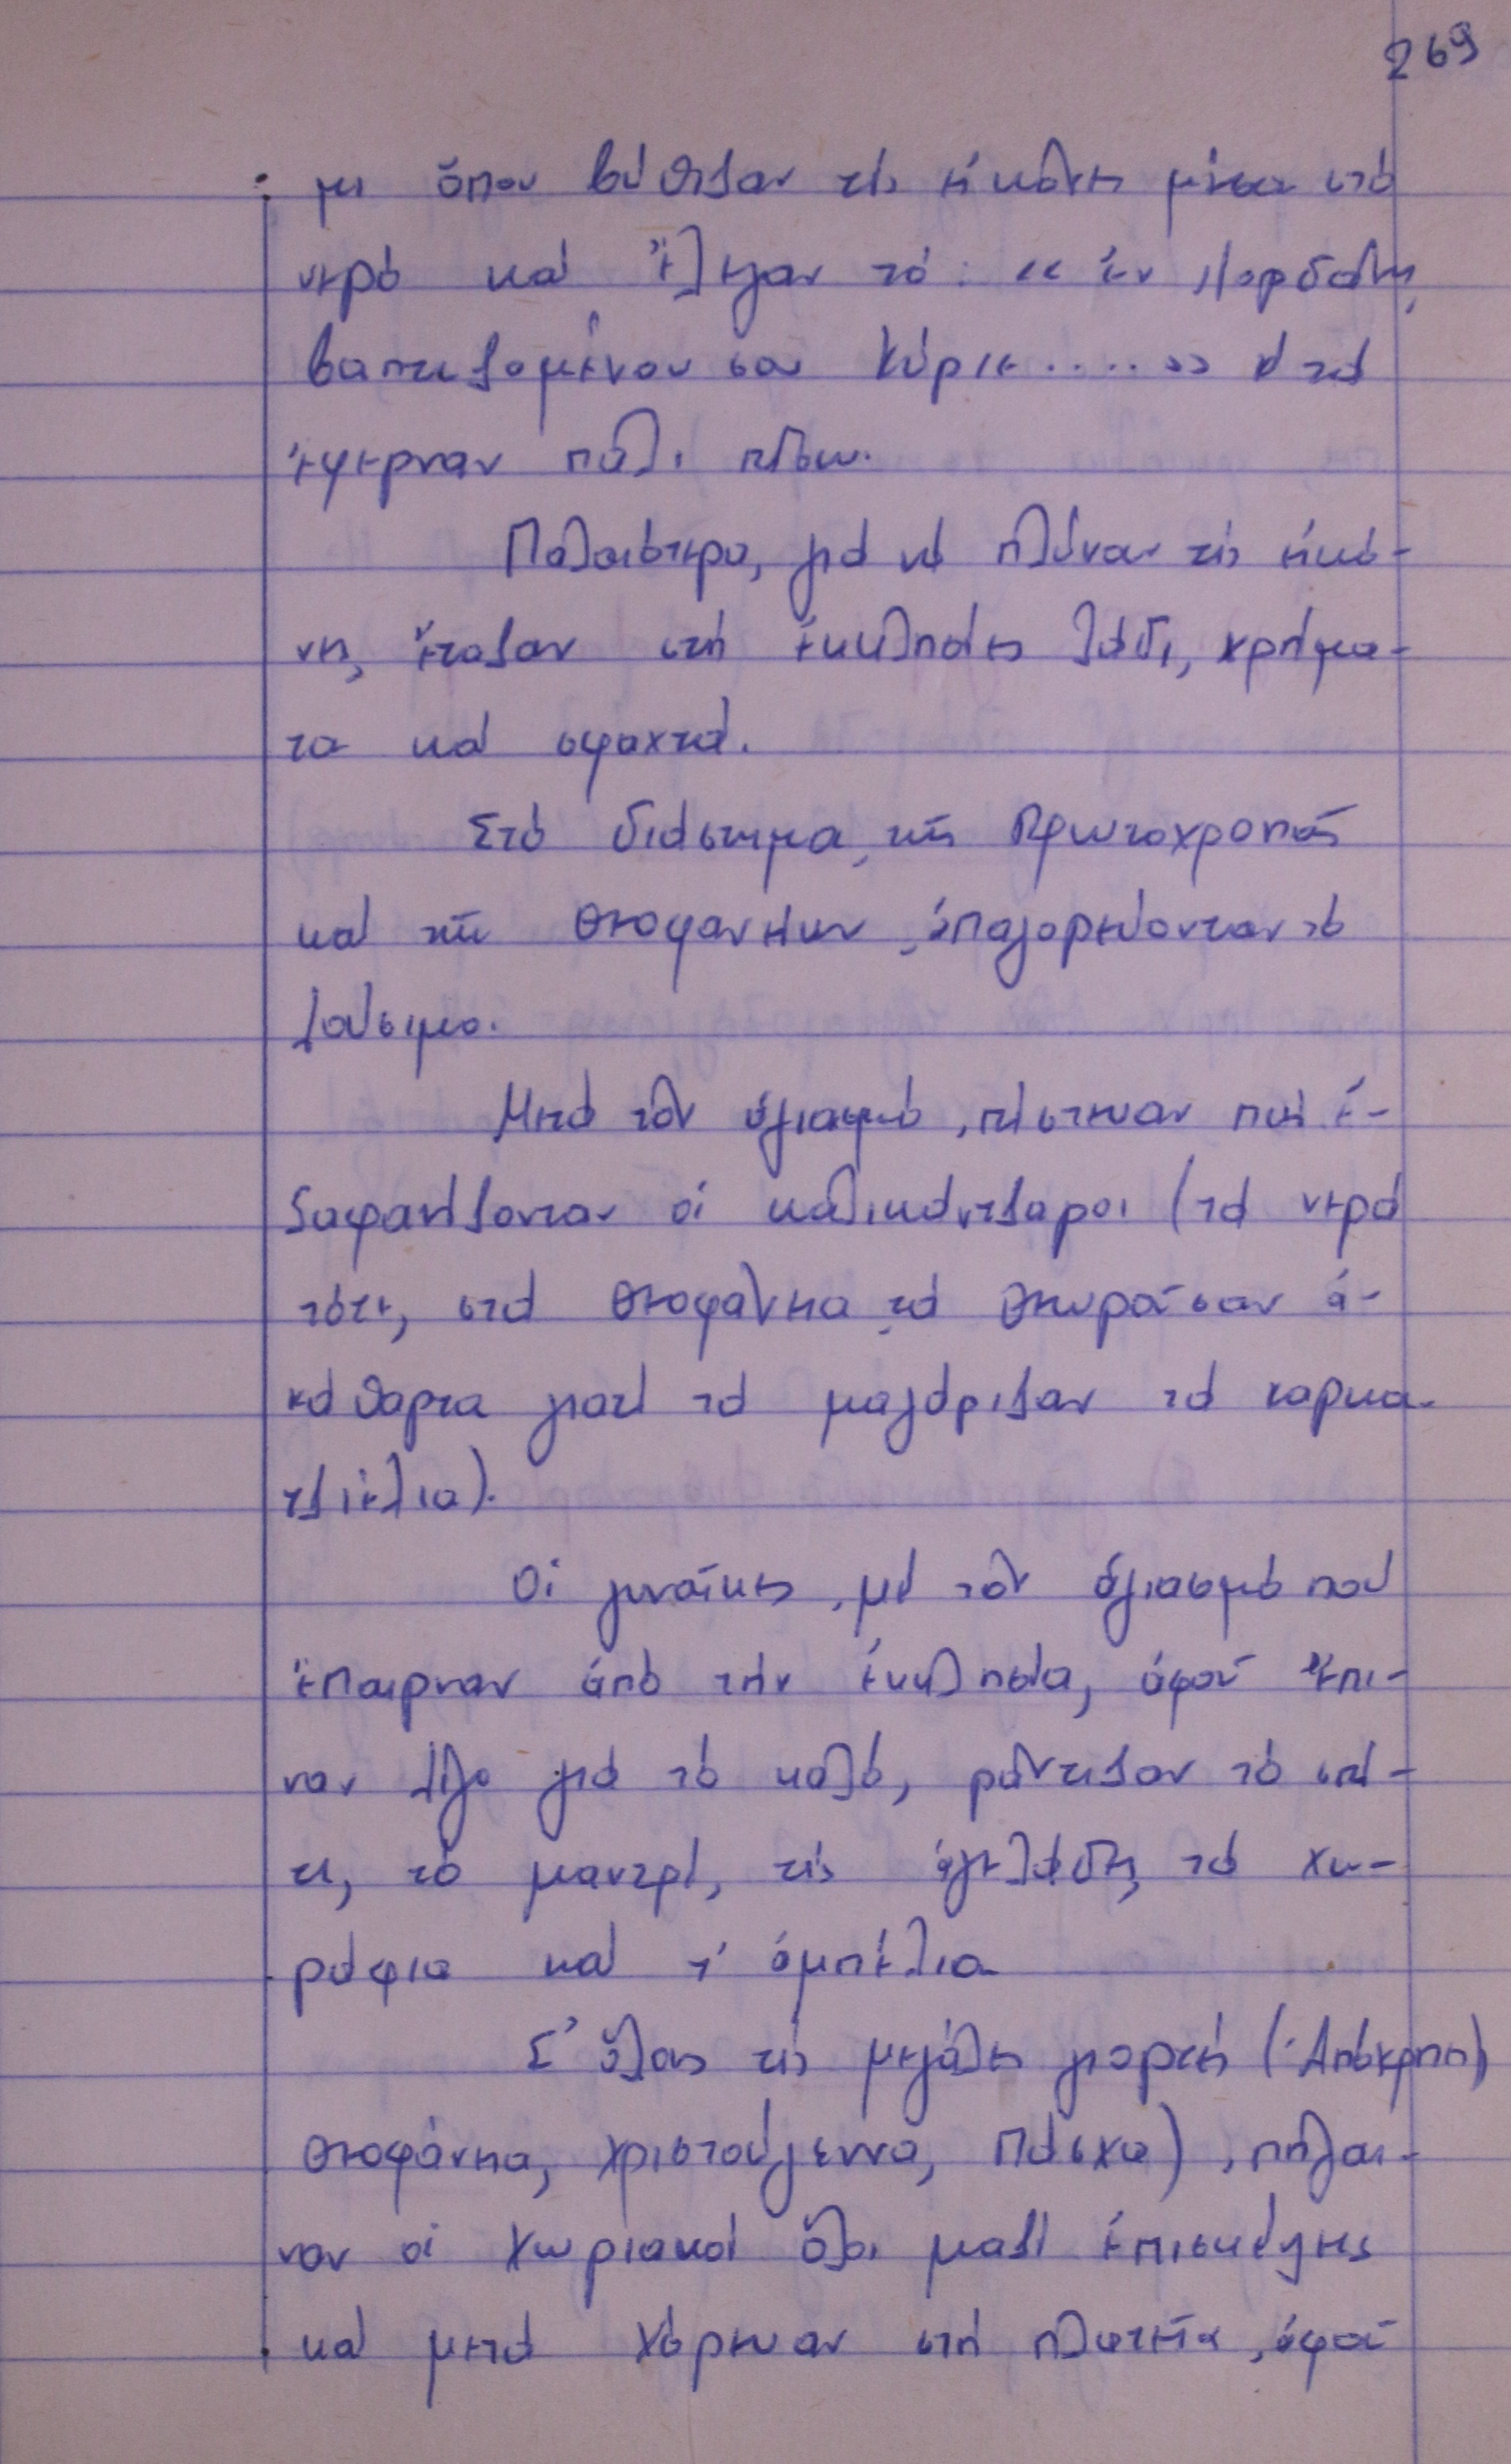 269
μι όπου βύθιζαν τίς εἰκόνες μέσα στό
νερό καί ἔλεγαν τό: «ἐν Ἰορδάνῃ
βαπτιζομένου σου Κύριε.....» κ' τίς
ἔφερναν πάλι πίσω.
Παλαιότερα, γιά νά πλύναν τίς εἰκό-
νες, ἔταζαν στή ἐκκλησίες λάδι, χρήμα-
τα καί σφαχτά.
Στό διάστημα, τῆς Πρωτοχρονιᾶς
καί τῶν Θεοφανείων, ἀπαγορεύονταν τό
λούσιμο.
Μετά τόν ἁγιασμό, πίστευαν πώς ἐ-
ξαφανίζονταν οἱ καλικάντζαροι (τά νερά
τότε, στά Θεοφάνεια, τά θεωροῦσαν ἀ-
κάθαρτα γιατί τά μαγάριζαν τά καρκα-
τζιέλια).
Οἱ γυναῖκες, μέ τόν ἁγιασμό πού
ἔπαιρναν ἀπό τήν ἐκκλησία, ἀφοῦ ἔπι-
ναν λίγο γιά τό καλό, ράντιζαν τό σπί-
τι, τό μαντρί, τίς ἀγελάδες, τά χω-
ράφια καί τ' ἀμπέλια
Σ' ὅλες τίς μεγάλες γιορτές (Ἀπόκρηες,
Θεοφάνεια, Χριστούγεννα, Πάσχα), πήγαι-
ναν οἱ χωριακοί ὅλοι μαζί ἐπισκέψεις
καί μετά χόρευαν στή πλατεῖα, ἀφοῦ